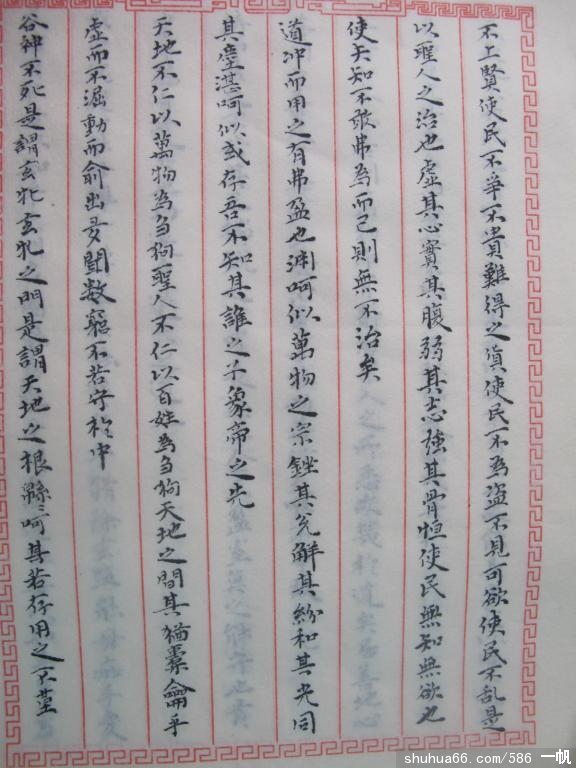 不上賢使民不爭不貴難得之貨使民不為盜不見可欲使民不乱是
以聖人之治也虛其心實其腹弱其志強其骨恒使民無知無欲也
使夫知不敢弗為而已則無不治矣
道冲而用之有弗盈也渊呵似萬物之宗銼其兌解其紛和其光同
其塵湛呵似或存吾不知其誰之子象帝之先
天地不仁以萬物為芻狗聖人不仁以百姓為芻狗天地之間其猶橐龠乎
虛而不淈動而俞出多聞数窮不若守於中
谷神不死是謂玄牝玄牝之門是謂天地之根緜〻呵其若存用之不堇
shuhua66.com/586 一帆